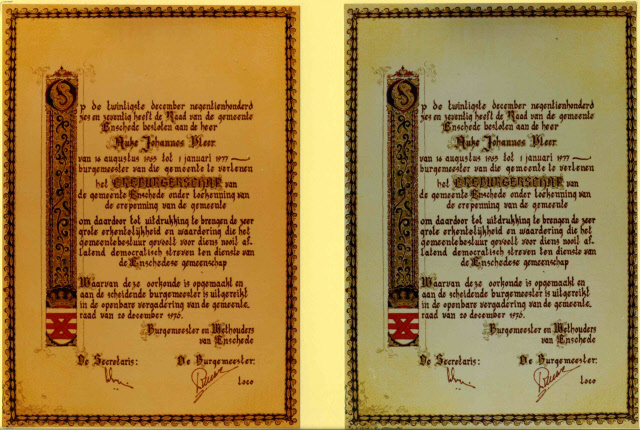 Op de twintigste december negentienhonderd
zes en zeventig heeft de Raad van de gemeente
Enschede besloten aan de heer
Auke Johannes Vleer
van 16 augustus 1965 tot 1 januari 1977
burgemeester van die gemeente te verlenen
het EREBURGERSCHAP van
de gemeente Enschede onder toekenning van
de erepenning van de gemeente
om daardoor tot uitdrukking te brengen de zeer
grote erkentelijkheid en waardering die het
gemeentebestuur gevoelt voor diens nooit af-
latend democratisch streven ten dienste van
de Enschedese gemeenschap
Waarvan deze oorkonde is opgemaakt en
aan de scheidende burgemeester is uitgereikt
in de openbare vergadering van de gemeente-
raad van 20 december 1976.
Burgemeester en Wethouders
van Enschede
De Secretaris: De Burgemeester:
loco
Op de twintigste december negentienhonderd
zes en zeventig heeft de Raad van de gemeente
Enschede besloten aan de heer
Auke Johannes Vleer
van 16 augustus 1965 tot 1 januari 1977
burgemeester van die gemeente te verlenen
het EREBURGERSCHAP van
de gemeente Enschede onder toekenning van
de erepenning van de gemeente
om daardoor tot uitdrukking te brengen de zeer
grote erkentelijkheid en waardering die het
gemeentebestuur gevoelt voor diens nooit af-
latend democratisch streven ten dienste van
de Enschedese gemeenschap
Waarvan deze oorkonde is opgemaakt en
aan de scheidende burgemeester is uitgereikt
in de openbare vergadering van de gemeente-
raad van 20 december 1976.
Burgemeester en Wethouders
van Enschede
De Secretaris: De Burgemeester:
loco